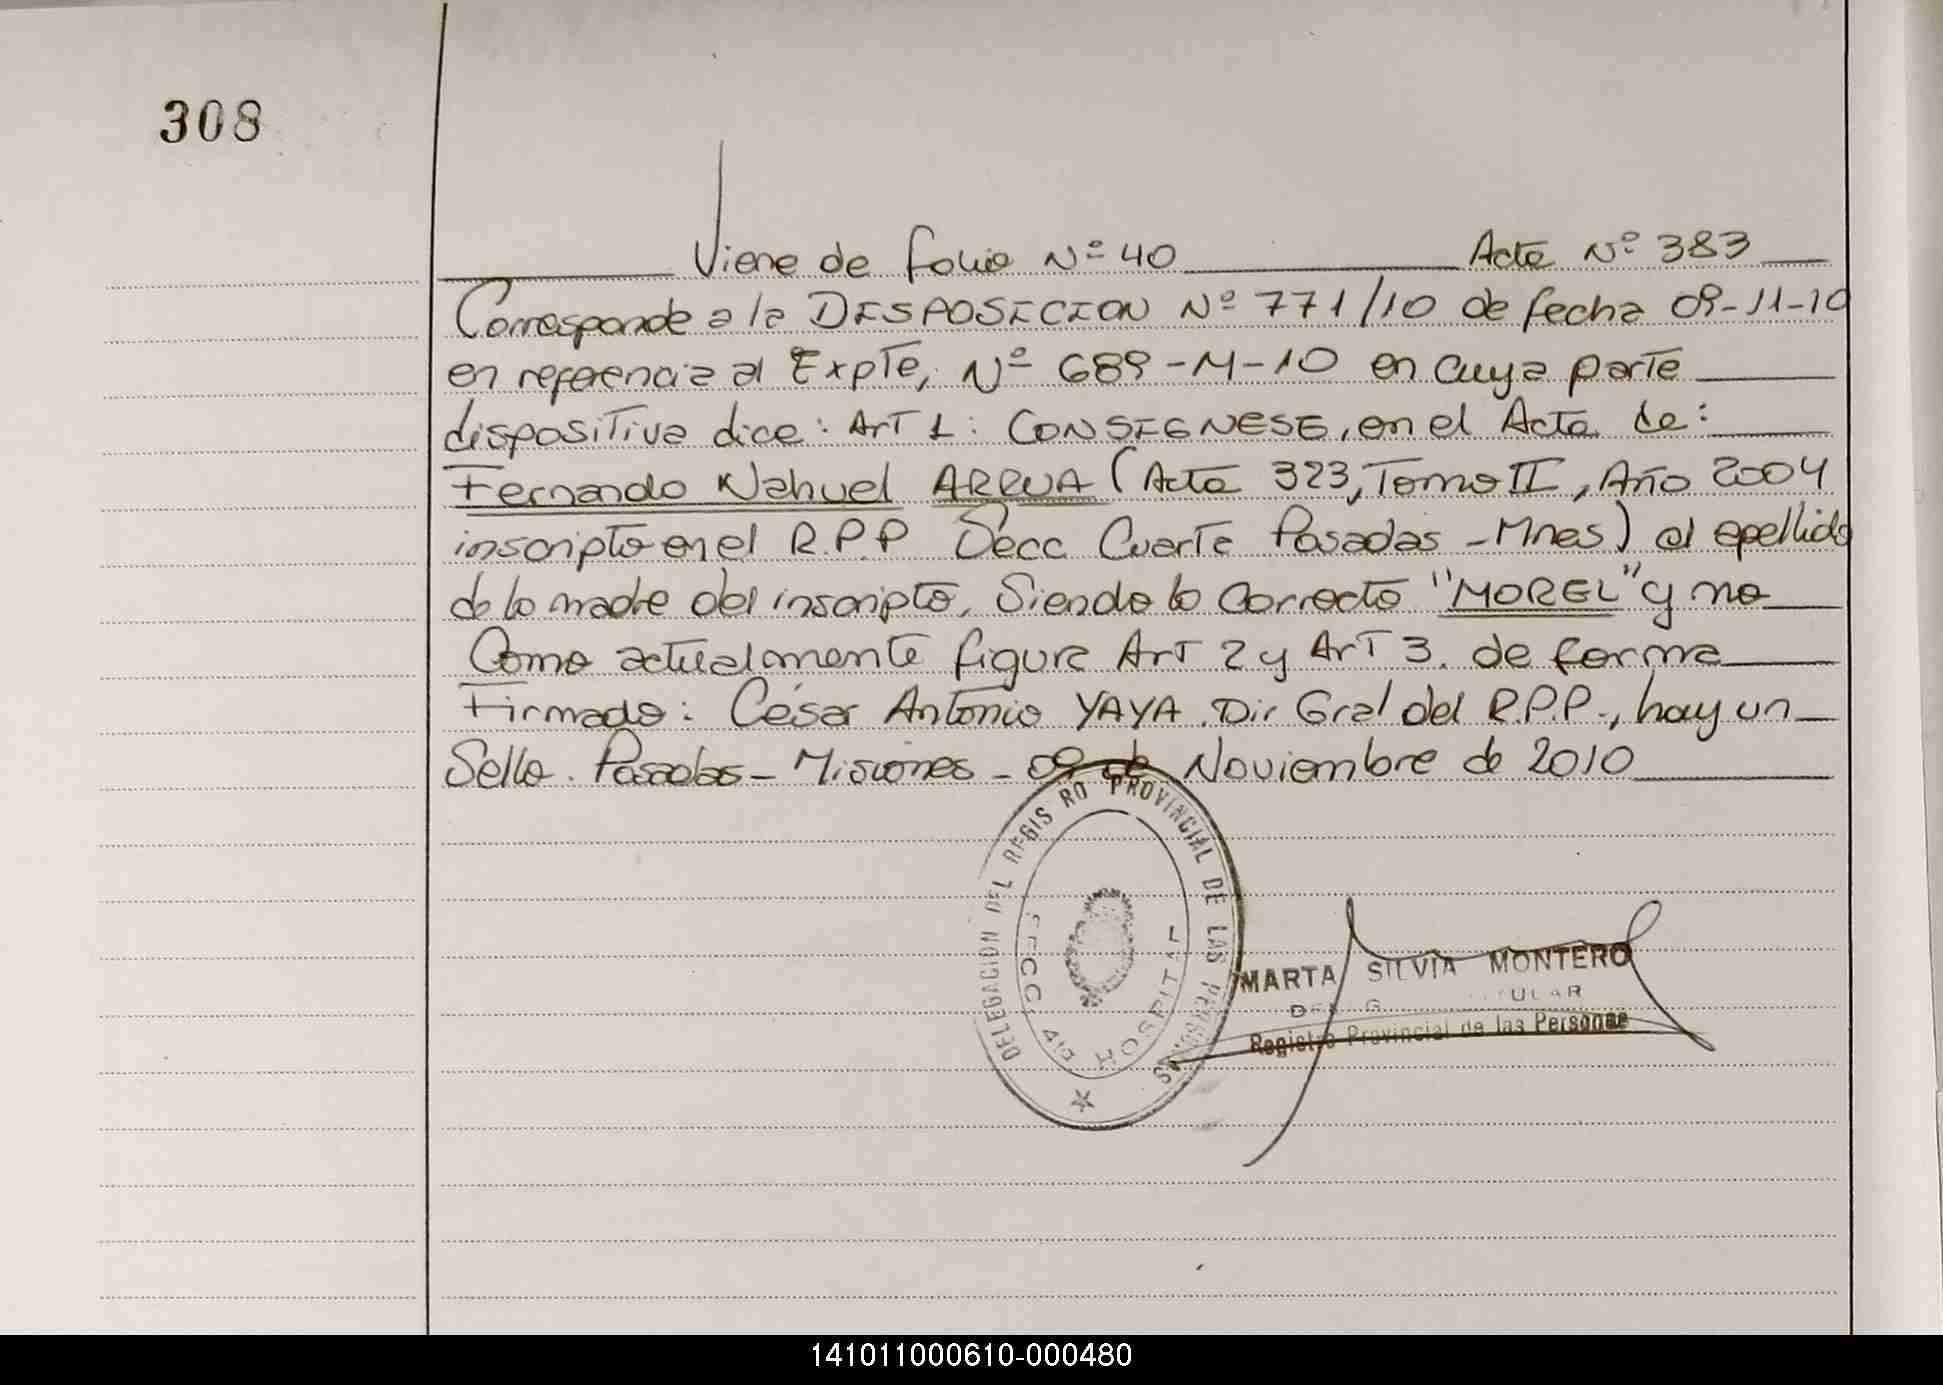 308
Viene de folio Nº 40 Acta Nº 383
Corresponde a la DISPOSICION Nº 771/10 de fecha 09-11-10
en referencia al Expte, Nº 689-M-10 en cuya parte
dispositiva dice: Art 1: CONSIGNESE, en el Acta de:
Fernando Nahuel ARRUA (Acta 323, Tomo II, Año 2004
inscripto en el R.P.P Secc Cuarta Posadas - Mnes) el apellido
de la madre del inscripto, Siendo lo correcto "MOREL" y no
Como actualmente figura Art 2 y Art 3. de forma
Firmado: César Antonio YAYA. Dir Gral del R.P.P., hay un
Sello. Posadas - Misiones - 09 de Noviembre de 2010
DELEGACION DEL REGIS RO PROVINCIAL DE LAS PERSONAS
SECC. 4ta HOSPITAL
MARTA SILVIA MONTERO
Registro Provincial de las Personas
141011000610-000480